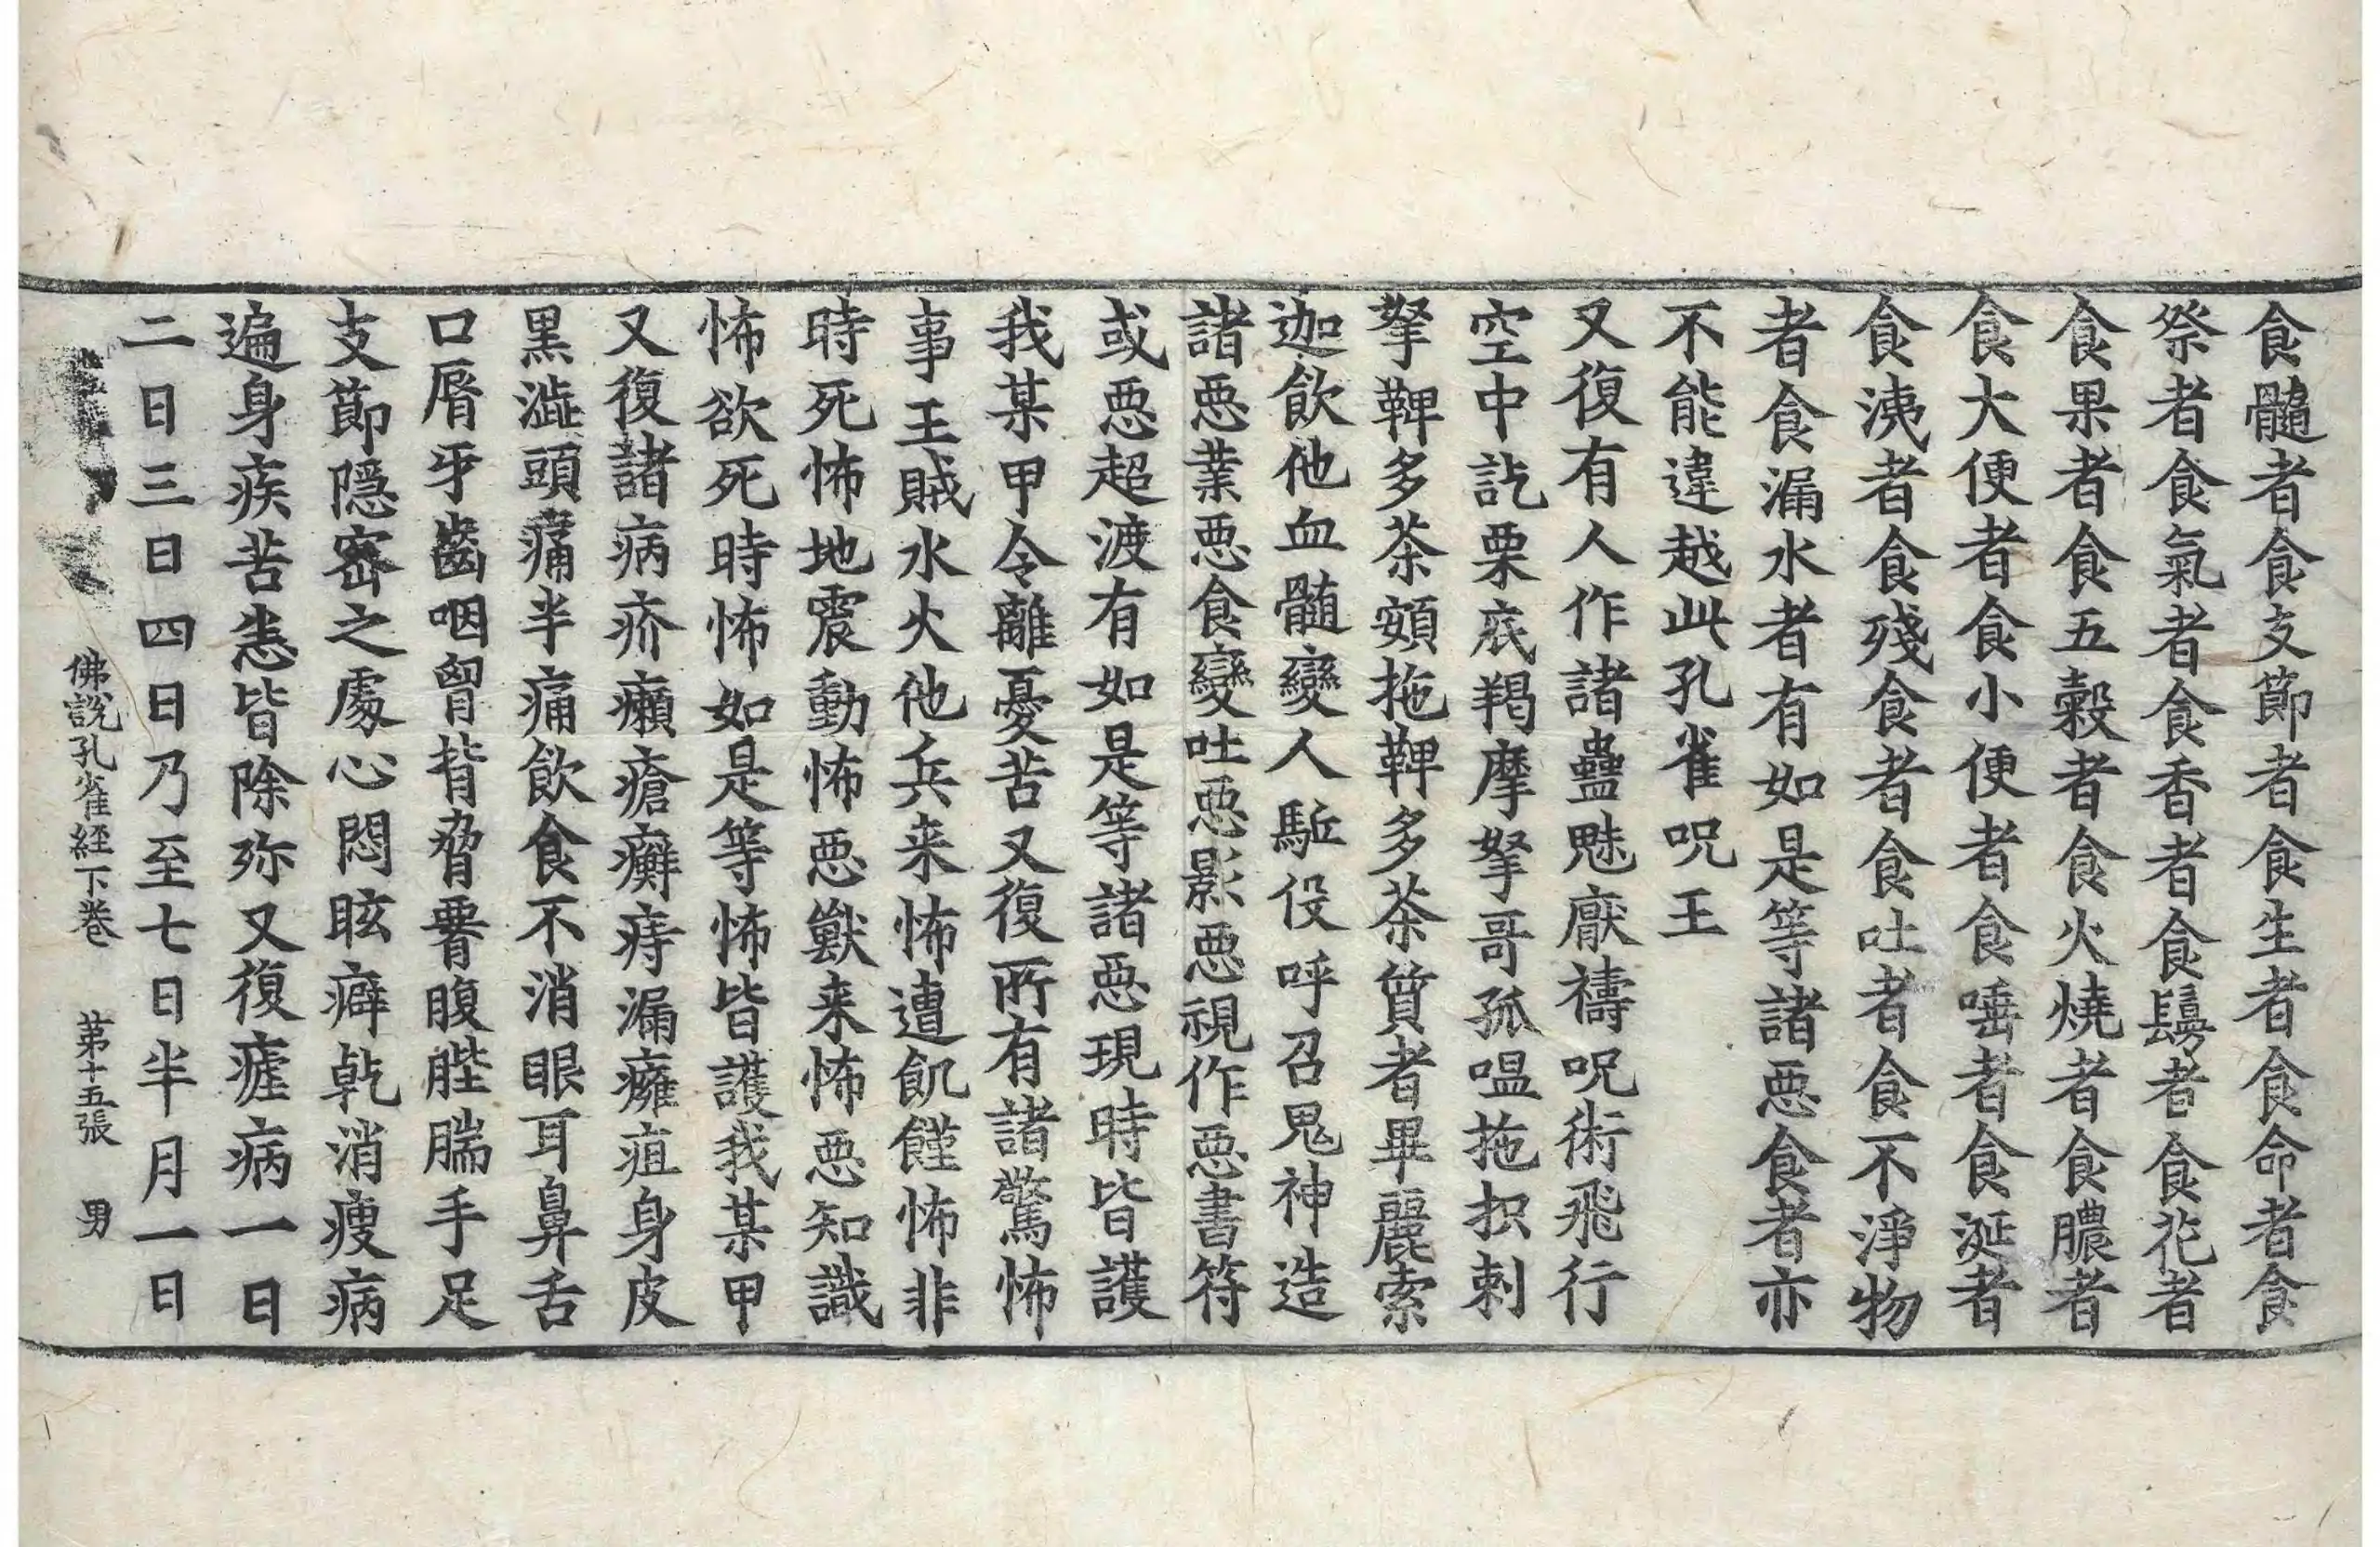 食髓者食支節者食生者食命者食
祭者食氣者食香者食鬘者食花者
食果者食五穀者食火燒者食膿者
食大便者食小便者食唾者食涎者
食洟者食殘食者食吐者食不淨物
者食漏水者有如是等諸惡食者亦
不能違越此孔雀呪王
又復有人作諸蠱魅厭禱呪術飛行
空中訖栗底羯摩拏哥孤嗢拖抧剌
拏鞞多荼頞拖鞞多荼質者畢麗索
迦飲他血髓變人駈役呼召鬼神造
諸惡業惡食變吐惡影惡視作惡書符
或惡超渡有如是等諸惡現時皆護
我某甲令離憂苦又復所有諸驚怖
事王賊水火他兵来怖遭飢饉怖非
時死怖地震動怖惡獸来怖惡知識
怖欲死時怖如是等怖皆護我某甲
又復諸病疥癩瘡癬痔漏癰疽身皮
黑澁頭痛半痛飲食不消眼耳鼻舌
口脣牙齒咽胷背脅腰腹䏶腨手足
支節隱密之處心悶眩癖乾消瘦病
遍身疾苦恙皆除弥又復瘧病一日
二日三日四日乃至七日半月一日
佛說孔雀経下卷 第十五張 男